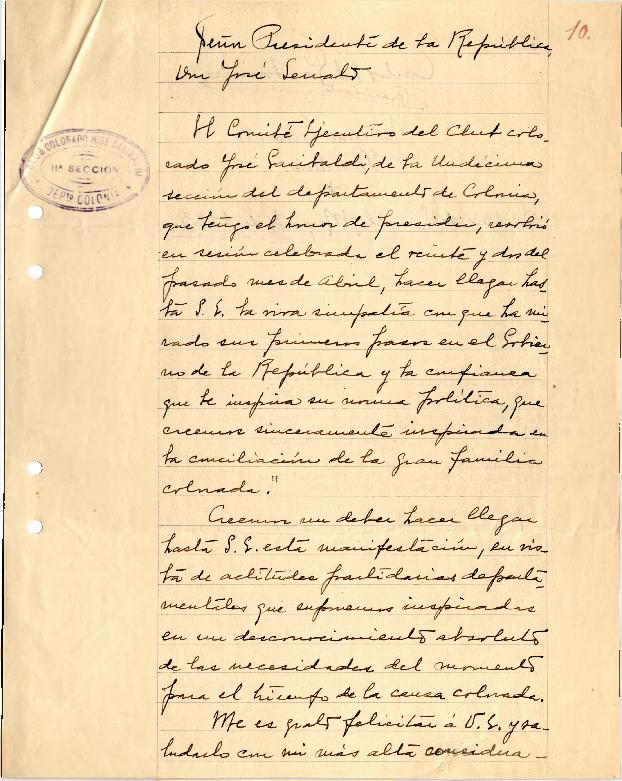 10.
Señor Presidente de la República,
Don José Serrato
CLUB COLORADO JOSE GARIBALDI
11ª SECCION
DEPTO COLONIA
El Comité Ejecutivo del Club colo-
rado José Garibaldi, de la Undécima
sección del departamento de Colonia,
que tengo el honor de presidir, resolvió
en sesión celebrada el veinte y dos del
pasado mes de Abril, hacer llegar has-
ta S. E. la viva simpatía con que ha mi-
rado sus primeros pasos en el Gobier-
no de la República y la confianza
que le inspira su norma política, que
creemos sinceramente inspirada en
la conciliación de la gran familia
colorada."
Creemos un deber hacer llegar
hasta S. E. esta manifestación, en vis-
ta de actitudes partidarias departa-
mentales que suponemos inspiradas
en un desconocimiento absoluto
de las necesidades del momento
para el triunfo de la causa colorada.
Me es grato felicitar á V. E. y sa-
ludarlo con mi más alta considera-